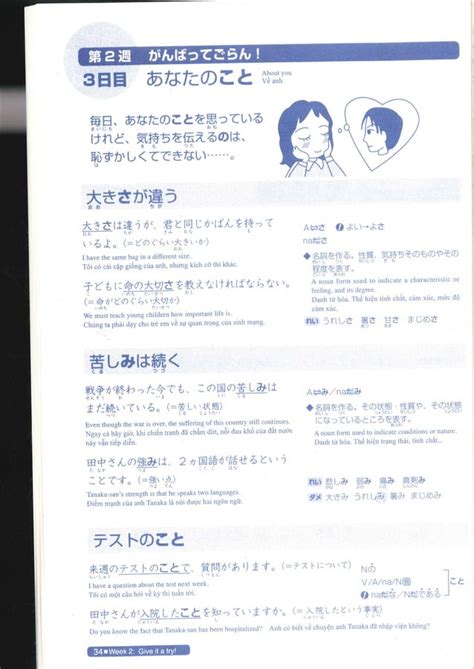 第2週 がんばってごらん！
3日目 あなたのこと About you
Về anh
毎日、あなたのことを思っている
けれど、気持ちを伝えるのは、
恥ずかしくてできない……。
大きさが違う
大きさは違うが、君と同じかばんを持って
いるよ。(=どのぐらい大きいか)
I have the same bag in a different size.
Tôi có cái cặp giống của anh, nhưng kích cỡ thì khác.
子どもに命の大切さを教えなければならない。
(=命がどのぐらい大切か)
We must teach young children how important life is.
Chúng ta phải dạy cho trẻ em về sự quan trọng của sinh mạng.
Aいさ よい→よさ
naださ
◆名詞を作る。性質、気持ちそのものやその
程度を表す。
A noun form used to indicate a characteristic or
feeling, and its degree.
Danh từ hóa. Thể hiện tính chất, cảm xúc, mức độ
cảm xúc.
れい うれしさ 暑さ 甘さ まじめさ
苦しみは続く
戦争が終わった今でも、この国の苦しみは
まだ続いている。(=苦しい状態)
Even though the war is over, the suffering of this country still continues.
Ngay cả bây giờ, khi chiến tranh đã chấm dứt, nỗi đau khổ của đất nước
này vẫn tiếp diễn.
田中さんの強みは、2ヵ国語が話せるという
ことです。(=強い点)
Tanaka-san's strength is that he speaks two languages.
Điểm mạnh của anh Tanaka là nói được hai ngôn ngữ.
Aいみ/naだみ
◆名詞を作る。その状態・性質・そのように
なっているところを表す。
A noun form used to indicate conditions or nature.
Danh từ hóa. Thể hiện trạng thái, tính chất...
れい 悲しみ 弱み 痛み 真剣み
ダメ 大きみ うれしみ 暑み まじめみ
テストのこと
来週のテストのことで、質問があります。(=テストについて)
I have a question about the test next week.
Tôi có một câu hỏi về kỳ thi tuần tới.
田中さんが入院したことを知っていますか。(=入院したという事実)
Do you know the fact that Tanaka-san has been hospitalized? Anh có biết về chuyện anh Tanaka đã nhập viện không?
Nの
V/A/na/N普 こと
naだな/Nだである
34 ■ Week 2: Give it a try!